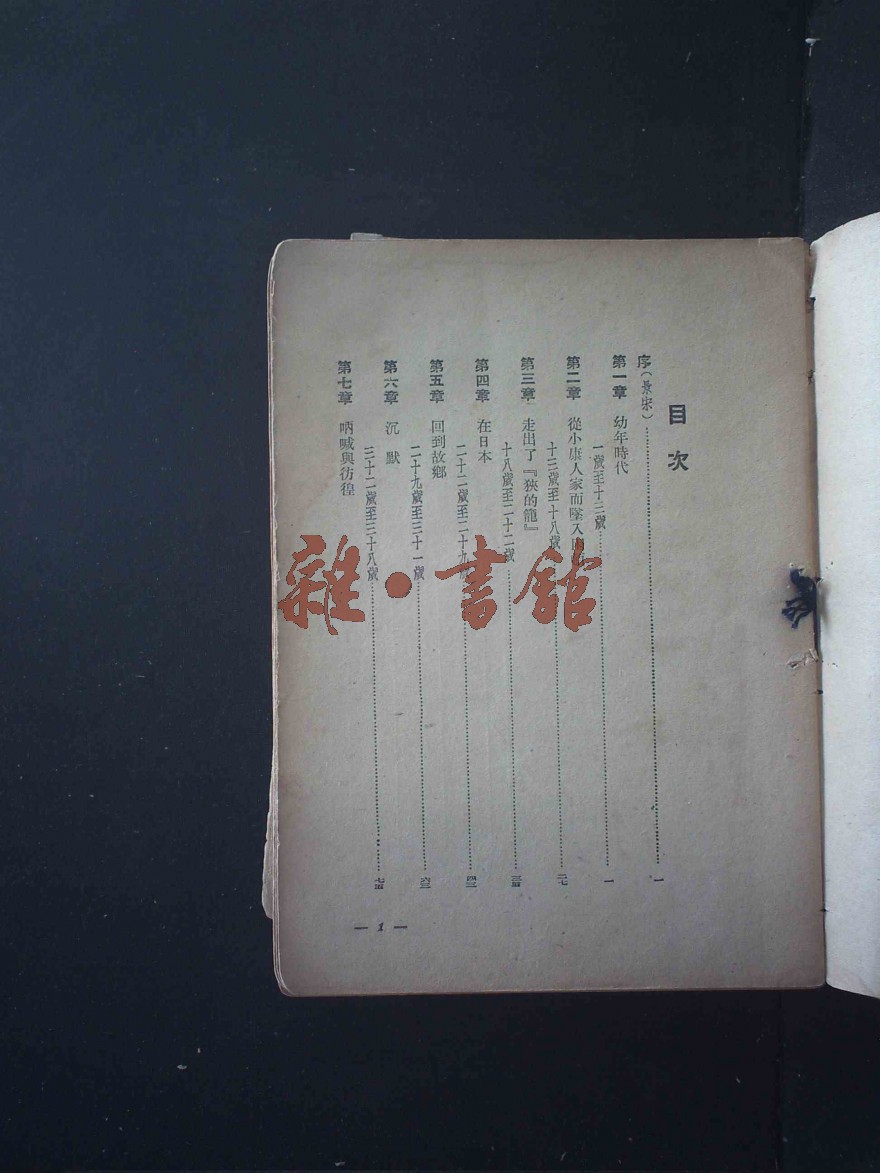 目次
序（景宋）……一
第一章 幼年時代
一歲至十三歲……一
第二章 從小康人家而墜入
十三歲至十八歲……二七
第三章 走出了『狹的籠』
十八歲至二十二歲……三五
第四章 在日本
二十二歲至二十九……四三
第五章 回到故鄉
二十九歲至三十一歲……六三
第六章 沉默
三十二歲至三十八歲……七五
第七章 吶喊與彷徨
— 1 —
雜·書館